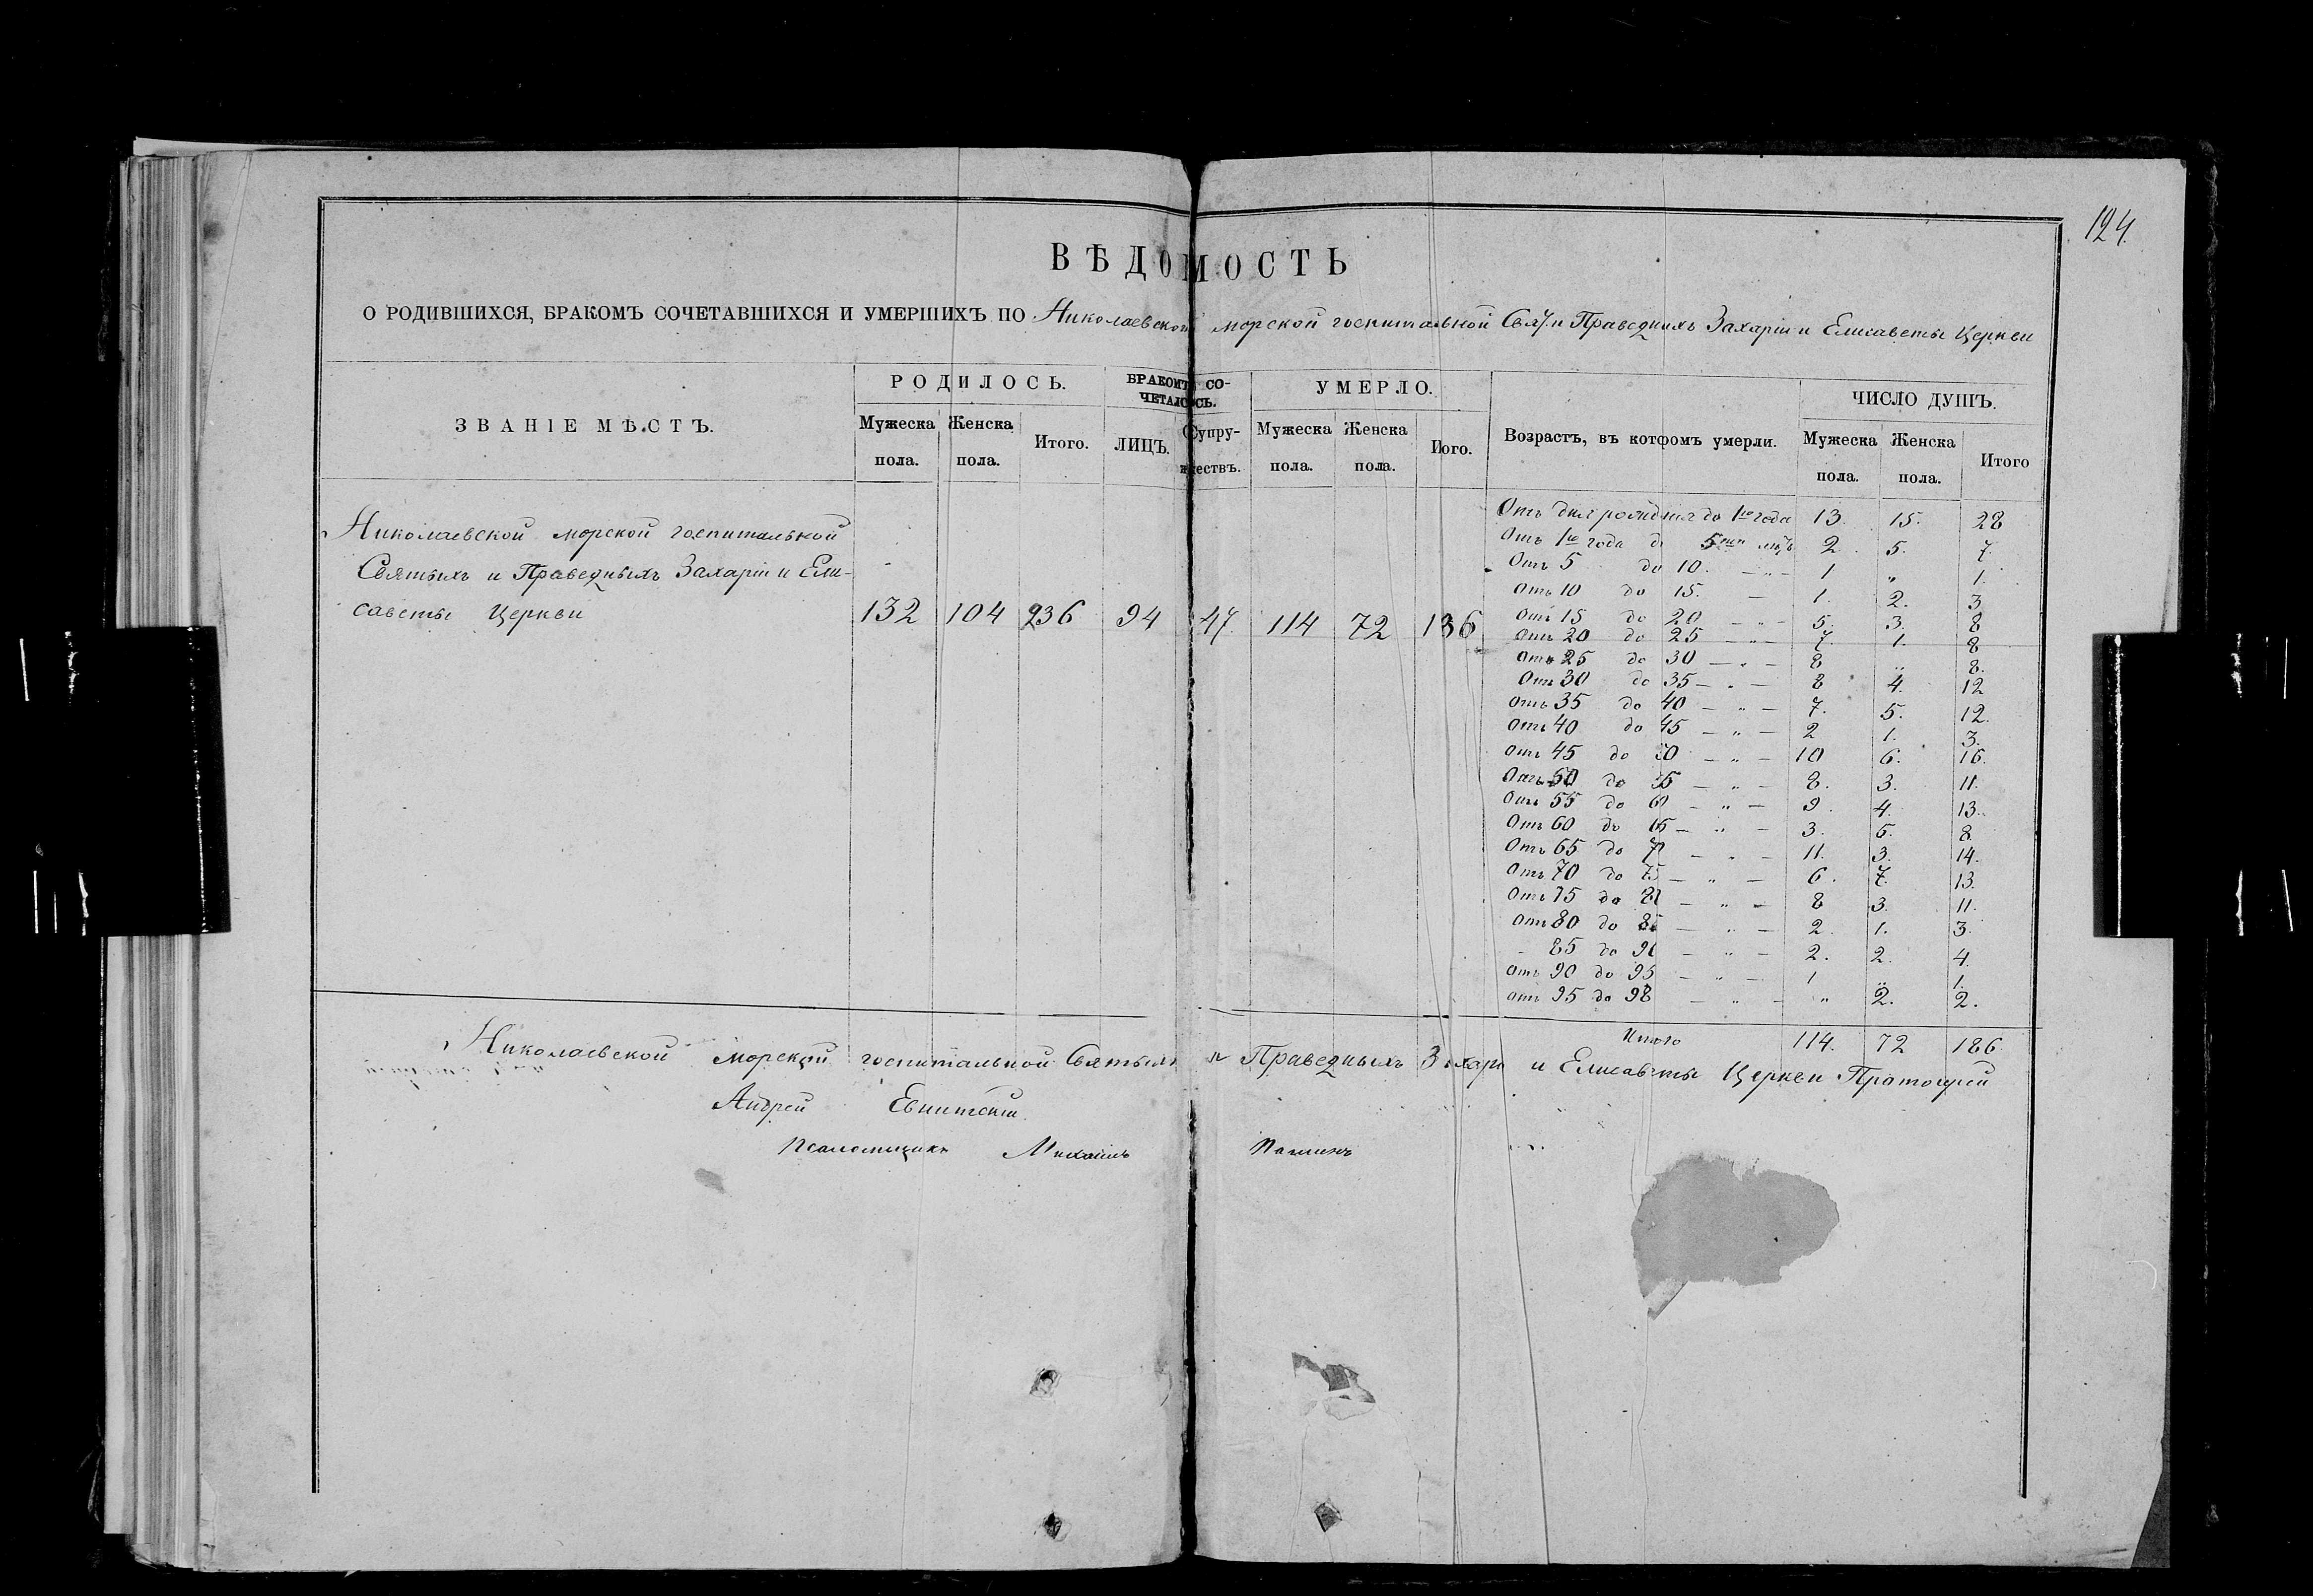 124.
ВѢДОМОСТЬ
О РОДИВШИХСЯ, БРАКОМЪ СОЧЕТАВШИХСЯ И УМЕРШИХЪ ПО Николаевской морской госпитальной Свят. и Праведныхъ Захаріи и Елисаветы Церкви
ЗВАНІЕ МѢСТЪ. РОДИЛОСЬ. БРАКОМЪ СО- УМЕРЛО. Возрастъ, въ которомъ умерли. ЧИСЛО ДУШЪ.
ЧЕТАЛОСЬ.
Мужеска Женска Итого. ЛИЦЪ. Супру- Мужеска Женска Итого. Мужеска Женска Итого
пола. пола. жествъ. пола. пола. пола. пола.
Николаевской морской госпитальной
Святыхъ и Праведныхъ Захаріи и Ели-
саветы Церкви 132 104 236 94 47 114 72 186
Отъ дня рожденія до 1го года 13. 15. 28
Отъ 1го года до 5ти лѣтъ 2. 5. 7.
Отъ 5 до 10. — „ — 1 „ 1.
Отъ 10 до 15. — 1. 2. 3
Отъ 15 до 20 — „ — 5. 3. 8
Отъ 20 до 25 — „ — 7. 1. 8
Отъ 25 до 30 — „ — 8 „ 8.
Отъ 30 до 35 — „ — 8 4. 12
Отъ 35 до 40 — „ — 7. 5. 12.
Отъ 40 до 45 — „ — 2 1. 3.
Отъ 45 до 50 — „ — 10 6. 16.
Отъ 50 до 55 — „ — 8. 3. 11.
Отъ 55 до 60 — „ — 9. 4. 13.
Отъ 60 до 65 — „ — 3. 5. 8.
Отъ 65 до 70 — „ — 11. 3. 14.
Отъ 70 до 75 — „ — 6. 7. 13.
Отъ 75 до 80 — „ — 8 3. 11.
Отъ 80 до 85 — „ — 2. 1. 3.
– 85 до 90 — „ — 2. 2. 4.
Отъ 90 до 95 — „ — 1 „ 1.
Отъ 95 до 98 — „ — „ 2. 2.
Итого 114. 72 186.
Николаевской Морской госпитальной Святыхъ и Праведныхъ Захаріи и Елисаветы Церкви Протоіерей
Андрей
Псаломщикъ Михаилъ